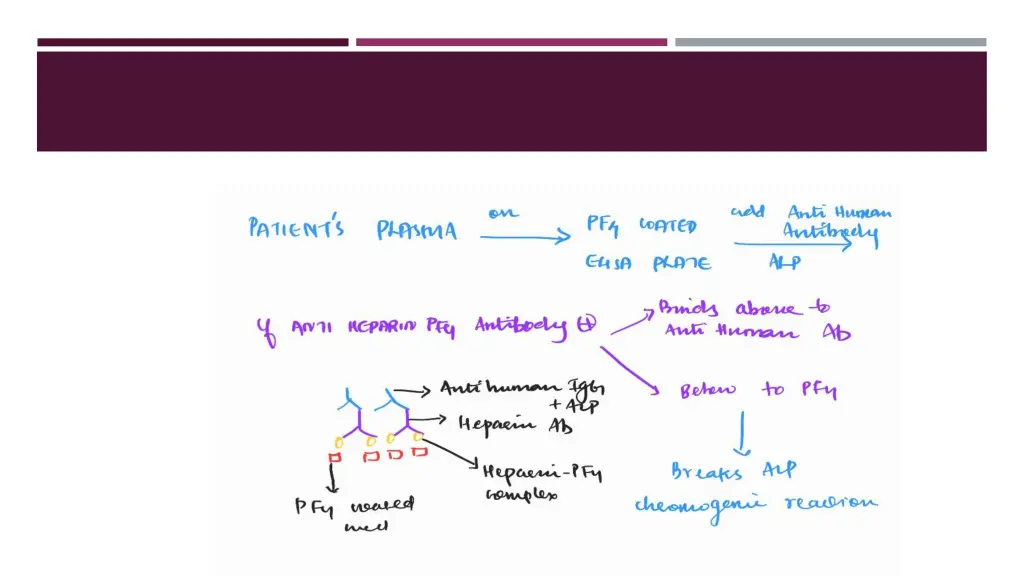 PATIENT'S PLASMA on PF4 COATED ELISA PLATE add Anti Human Antibody ALP
If ANTI HEPARIN PF4 Antibody ⊕
Binds above to
Anti Human Ab
Below to PF4
Breaks ALP
chromogenic reaction
Anti human IgG
+ ALP
Heparin Ab
Heparin-PF4
complex
PF4 coated